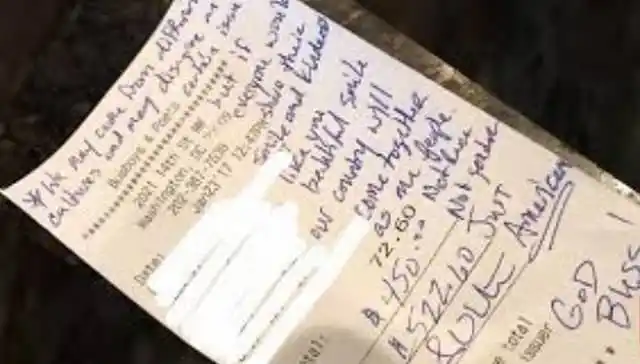 * We may come from different
cultures and may disagree on
certain issue
but if
everyone would
share their
smile and kindness
like you
beautiful smile
our country will
come together
as one people
Not Race
Not gender
Just
American
God
Bless!
Busboys & Poets
2021 14th St NW
Washington, DC
202-387-7638
Jan23'17 12:
Date:
72.60
$ 450.00
$ 522.60
total
issuer